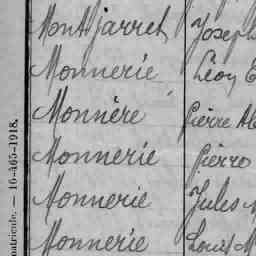 Montjarret Joseph
Monnerie Léon
Monnère Pierre Al
Monnerie Pierre
Monnerie Jules
Monnerie Louis M
matricule. — 16-465-1918.